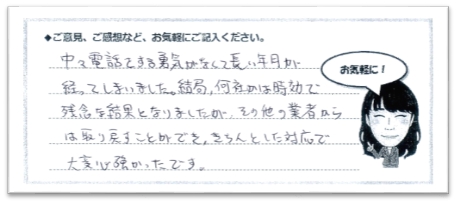 ◆ご意見、ご感想など、お気軽にご記入ください。
中々電話できる勇気がなくて長い年月が
経ってしまいました。結局、何社かは時効で
残念な結果となりましたが、その他の業者から
は取り戻すことができ、きちんとした対応で
大変心強かったです。
お気軽に!